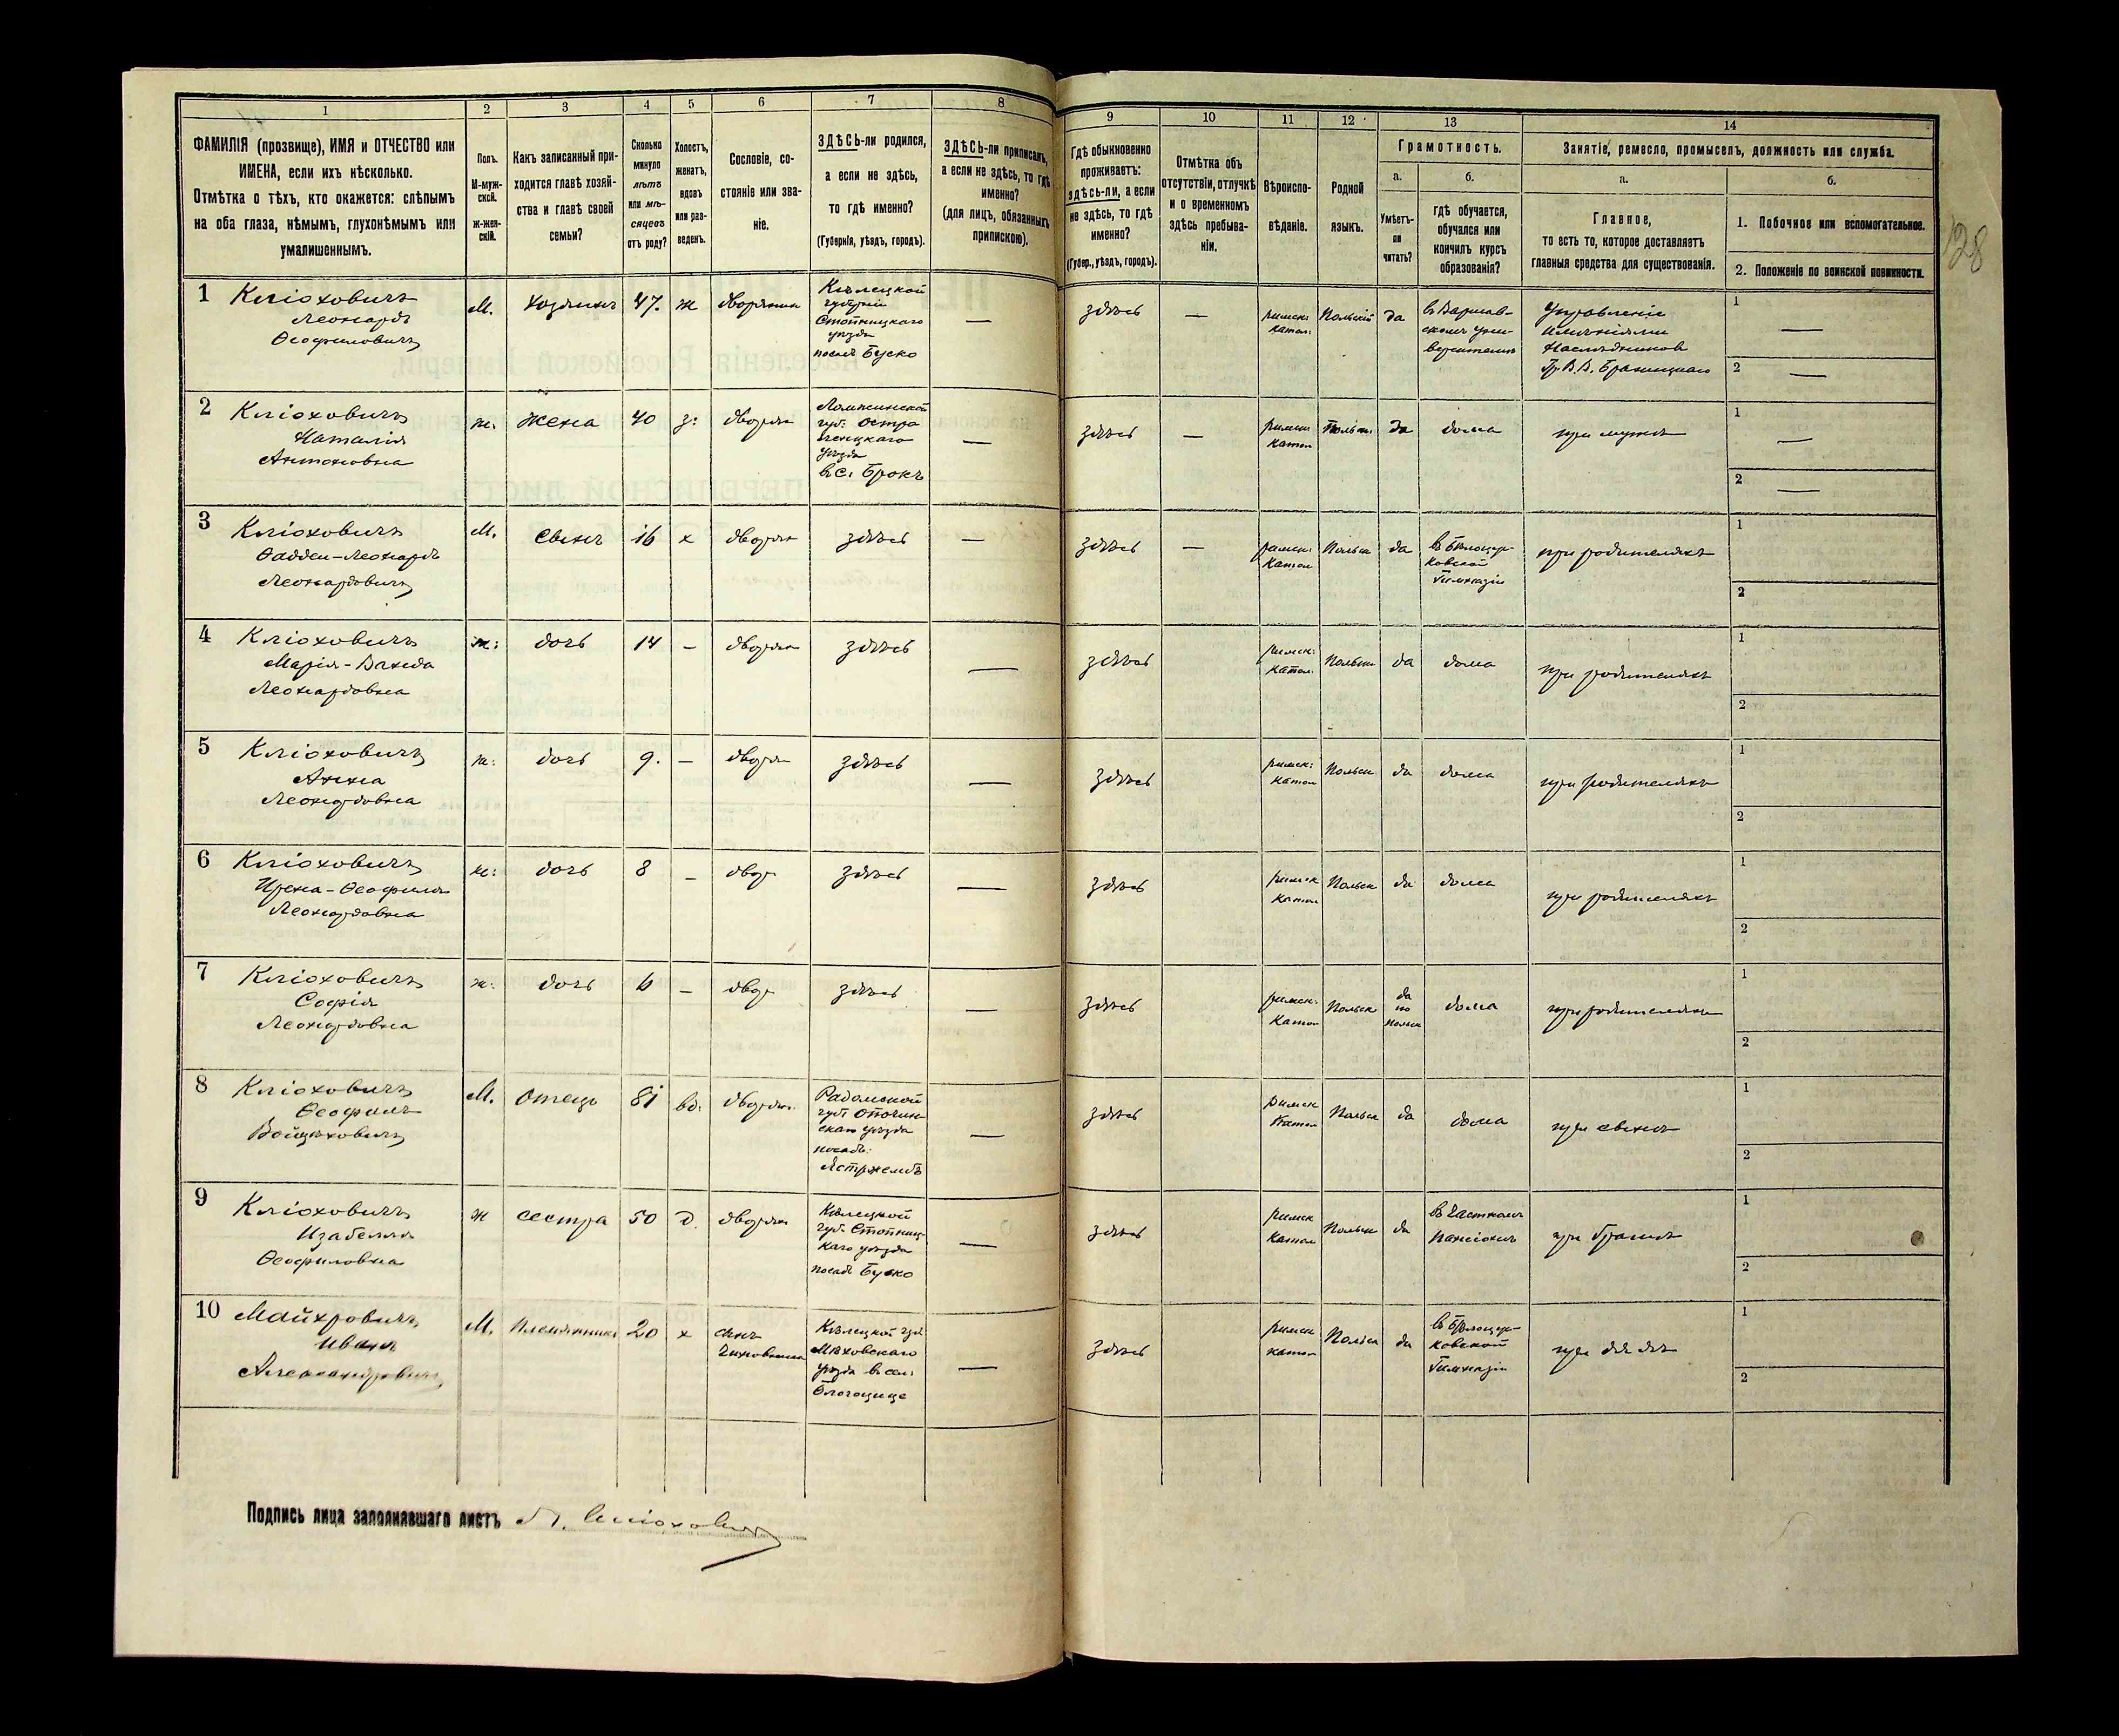 1
2
3
4
5
6
7
8
9
10
11
12
13
14
ФАМИЛІЯ (прозвище), ИМЯ и ОТЧЕСТВО или
ИМЕНА, если ихъ нѣсколько.
Отмѣтка о тѣхъ, кто окажется: слѣпымъ
на оба глаза, нѣмымъ, глухонѣмымъ или
умалишеннымъ.
Полъ.
М-муж-
ской.
Ж-жен-
скій.
Какъ записанный при-
ходится главѣ хозяй-
ства и главѣ своей
семьи?
Сколько
минуло
лѣтъ
или мѣ-
сяцевъ
отъ роду?
Холостъ,
женатъ,
вдовъ
или раз-
веденъ.
Сословіе, со-
стояніе или зва-
ніе.
ЗДѢСЬ-ли родился,
а если не здѣсь,
то гдѣ именно?
(Губернія, уѣздъ, городъ).
ЗДѢСЬ-ли приписанъ,
а если не здѣсь, то гдѣ
именно?
(для лицъ, обязанныхъ
припискою).
Гдѣ обыкновенно
проживаетъ:
здѣсь-ли, а если
не здѣсь, то гдѣ
именно?
(Губер., уѣздъ, городъ).
Отмѣтка объ
отсутствіи, отлучкѣ
и о временномъ
здѣсь пребыва-
ніи.
Вѣроиспо-
вѣданіе.
Родной
языкъ.
Грамотность.
а.
Умѣетъ-
ли
читать?
б.
гдѣ обучается,
обучался или
кончилъ курсъ
образованія?
Занятіе, ремесло, промыселъ, должность или служба.
а.
Главное,
то есть то, которое доставляетъ
главныя средства для существованія.
б.
1. Побочное или вспомогательное.
2. Положеніе по воинской повинности.
128
1 Кліоховичъ
Леонардъ
Ѳеофиловичъ
М. хозяинъ 47. ж дворянинъ
Кѣлецкой
губерніи
Стопницкаго
уѣзда
посадъ Буско
—
здѣсь — римск: катол: Польскій да
въ Варшав-
скомъ уни-
верситетѣ
Управленіе
имѣніями
Наслѣдниковъ
Гр. В. В. Браницкаго
1 —
2 —
2 Кліоховичъ
Наталія
Антоновна
ж. жена 40 з: дворян
Ломжинской
губ: Остро
уѣзда
въ с. Брокъ
—
здѣсь — римск: катол Польск: да дома при мужѣ
1 —
2 —
3 Кліоховичъ
Ѳаддей-Леонардъ
Леонардовичъ
М. сынъ 16 х дворян здѣсь —
здѣсь — римск: катол Польск да
въ Бѣлоцер-
ковской
Гимназіи
при родителяхъ
1
2
4 Кліоховичъ
Марія-Ванда
Леонардовна
ж: дочь 14 — дворян здѣсь —
здѣсь римск: катол: Польск да дома при родителяхъ
1
2
5 Кліоховичъ
Анна
Леонардовна
ж: дочь 9. — дворян здѣсь —
здѣсь римск: катол Польск да дома при родителяхъ
1
2
6 Кліоховичъ
Ирена-Ѳеофила
Леонардовна
ж: дочь 8 — двор здѣсь —
здѣсь римск катол Польск да дома при родителяхъ
1
2
7 Кліоховичъ
Софія
Леонардовна
ж: дочь 6 — двор здѣсь —
здѣсь римск: катол Польск
да
по
польск
дома при родителяхъ
1
2
8 Кліоховичъ
Ѳеофилъ
Войцѣховичъ
М. отецъ 81 вд. дворян.
Радомской
губ Опочин-
скаго уѣзда
посадъ:
Ястржембъ
—
здѣсь римск катол Польск да дома при сынѣ
1
2
9 Кліоховичъ
Изабелла
Ѳеофиловна
ж сестра 50 д. дворян
Кѣлецкой
губ. Стопниц-
каго уѣзда
посадъ Буско
—
здѣсь римск катол Польск да
въ частномъ
пансіонѣ
при братѣ
1
2
10 Майхровичъ
Иванъ
Александровичъ
М. племянникъ 20 х
сынъ
чиновника
Кѣлецкой губ
Мѣховскаго
уѣзда въ сел:
—
здѣсь римск катол Польск да
въ Бѣлоцер-
ковской
Гимназіи
при дядѣ
1
2
Подпись лица заполнявшаго листъ Л. Кліоховичъ